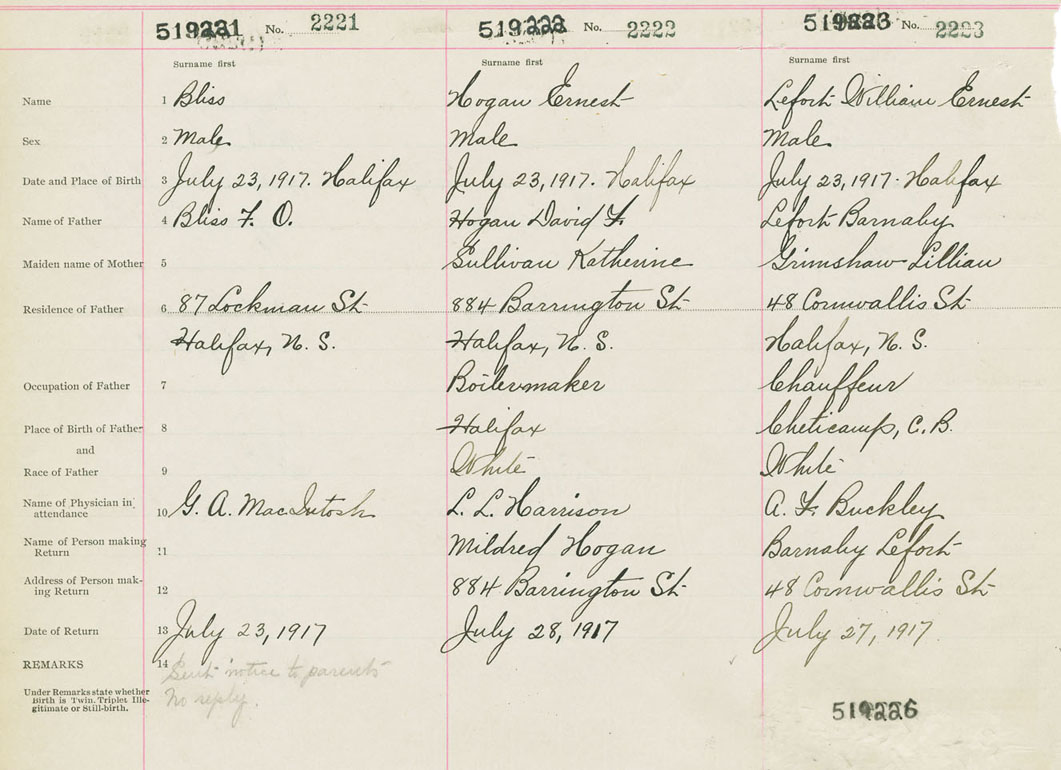 No. 2221 No. 2222 No. 2223
Surname first Surname first Surname first
Name 1 Bliss Hogan Ernest Lefort William Ernest
Sex 2 Male Male Male
Date and Place of Birth 3 July 23, 1917. Halifax July 23, 1917. Halifax July 23, 1917. Halifax
Name of Father 4 Bliss F. O. Hogan David F. Lefort Barnaby
Maiden name of Mother 5 Sullivan Katherine Grimshaw Lillian
Residence of Father 6 87 Lockman St 884 Barrington St 48 Cornwallis St
Halifax, N. S. Halifax, N. S. Halifax, N. S.
Occupation of Father 7 Boilermaker Chauffeur
Place of Birth of Father 8 Halifax Cheticamp, C. B.
and
Race of Father 9 White White
Name of Physician in attendance 10 G. A. MacIntosh L. L. Harrison A. F. Buckley
Name of Person making Return 11 Mildred Hogan Barnaby Lefort
Address of Person mak-ing Return 12 884 Barrington St 48 Cornwallis St
Date of Return 13 July 23, 1917 July 28, 1917 July 27, 1917.
REMARKS 14 Sent notice to parents
Under Remarks state whether Birth is Twin. Triplet Ille-gitimate or Still-birth. No reply.